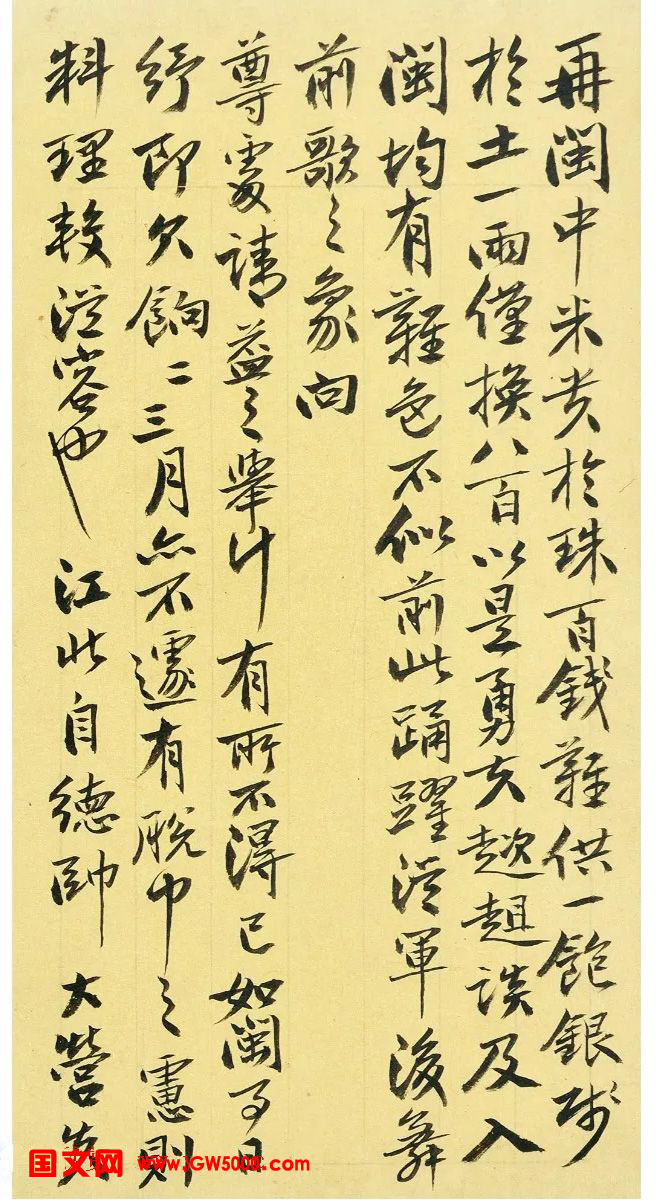 再閩中米貴於珠百錢難供一飽銀賤
於土一兩僅換八百以是勇夫趑趄談及入
閩均有難色不似前此踊躍從軍後舞
前歌之象向
尊處請益之舉計有所不得已如閩事日
紓即欠餉二三月亦不遽有脫巾之慮則
料理較從容也江北自德帥大營失
国文网 www.IGW5000.com